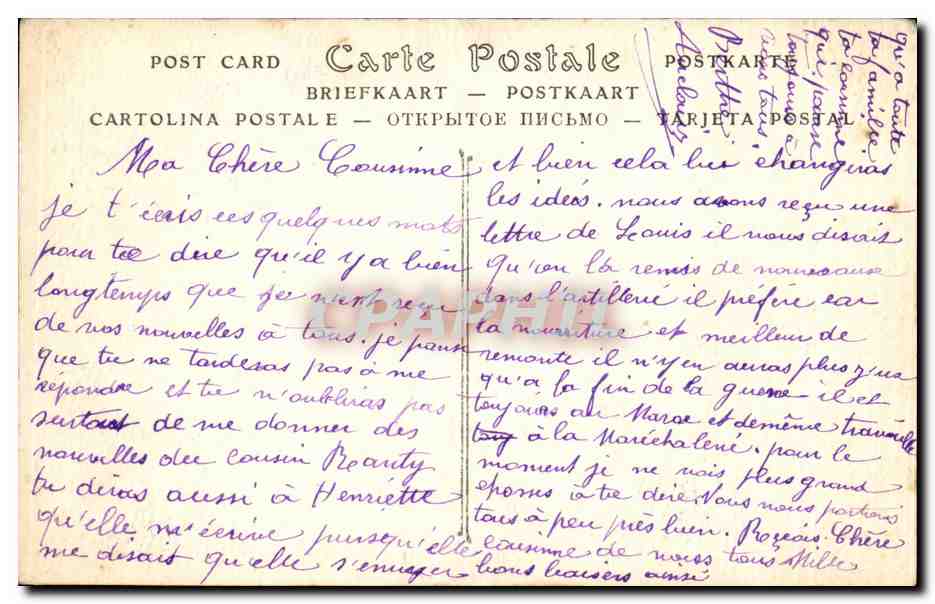 POST CARD Carte Postale POSTKARTE
BRIEFKAART — POSTKAART
CARTOLINA POSTALE — ОТКРЫТОЕ ПИСЬМО — TARJETA POSTAL
Ma Chère Cousinne
je t'écris ces quelques mots
pour te dire qu'il y a bien
longtemps que je n'est reçu
de vos nouvelles à tous. je pense
que tu ne tarderas pas à me
répondre et tu n'oubliras pas
surtout de me donner des
nouvelles du cousin
tu diras aussi à Henriette
qu'elle m'écrive puisqu'elle
me disait qu'elle s'ennuyer
et bien cela lui changeras
les idées. nous avons reçu une
lettre de Louis il nous disait
qu'on l'a remis de nouveaux
dans l'artillerie il préfère car
la nourriture et meilleur de
remonte il n'y en auras plus
qu'a la fin de la guerre il et
toujours au Maroc et de même travaille
à la Maréchalerie. pour le
moment je ne vois plus grand
choses à te dire. Nous nous portons
tous à peu près bien. Reçois Chère
cousinne de nous tous Mille
bons baisers ainsi
qu'a toute
ta famille
ta cousine
qui pense
toujours à
vous tous.
Berthe
CPAPHIL